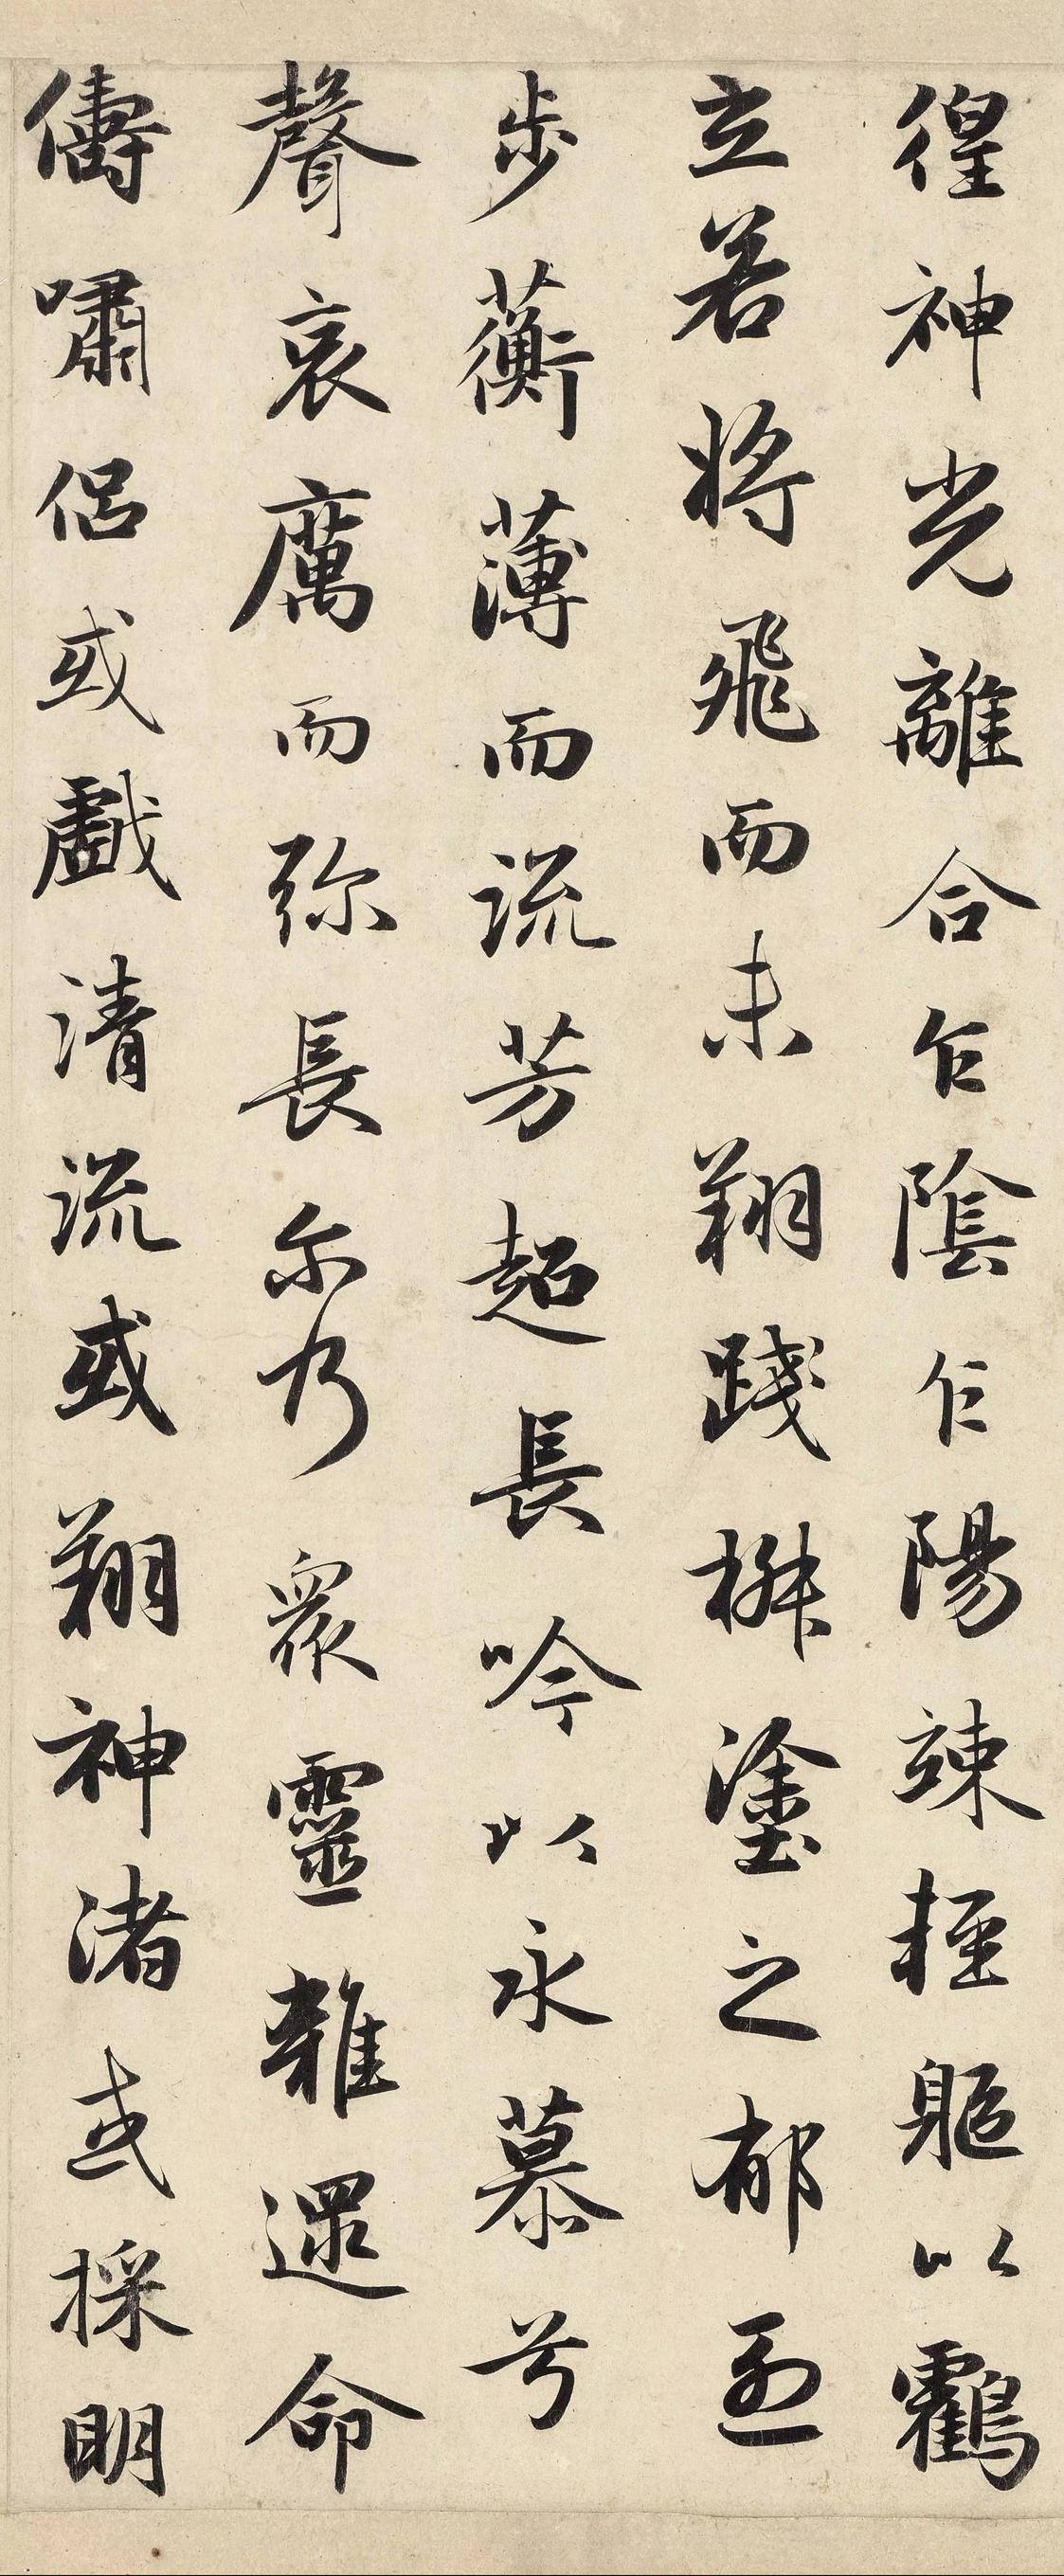 徨神光離合乍陰乍陽竦輕軀以鸖
立若將飛而未翔踐椒塗之郁烈
步蘅薄而流芳超長吟以永慕兮
聲哀厲而弥長尒乃眾靈雜遝命
儔嘯侶或戲清流或翔神渚或採明